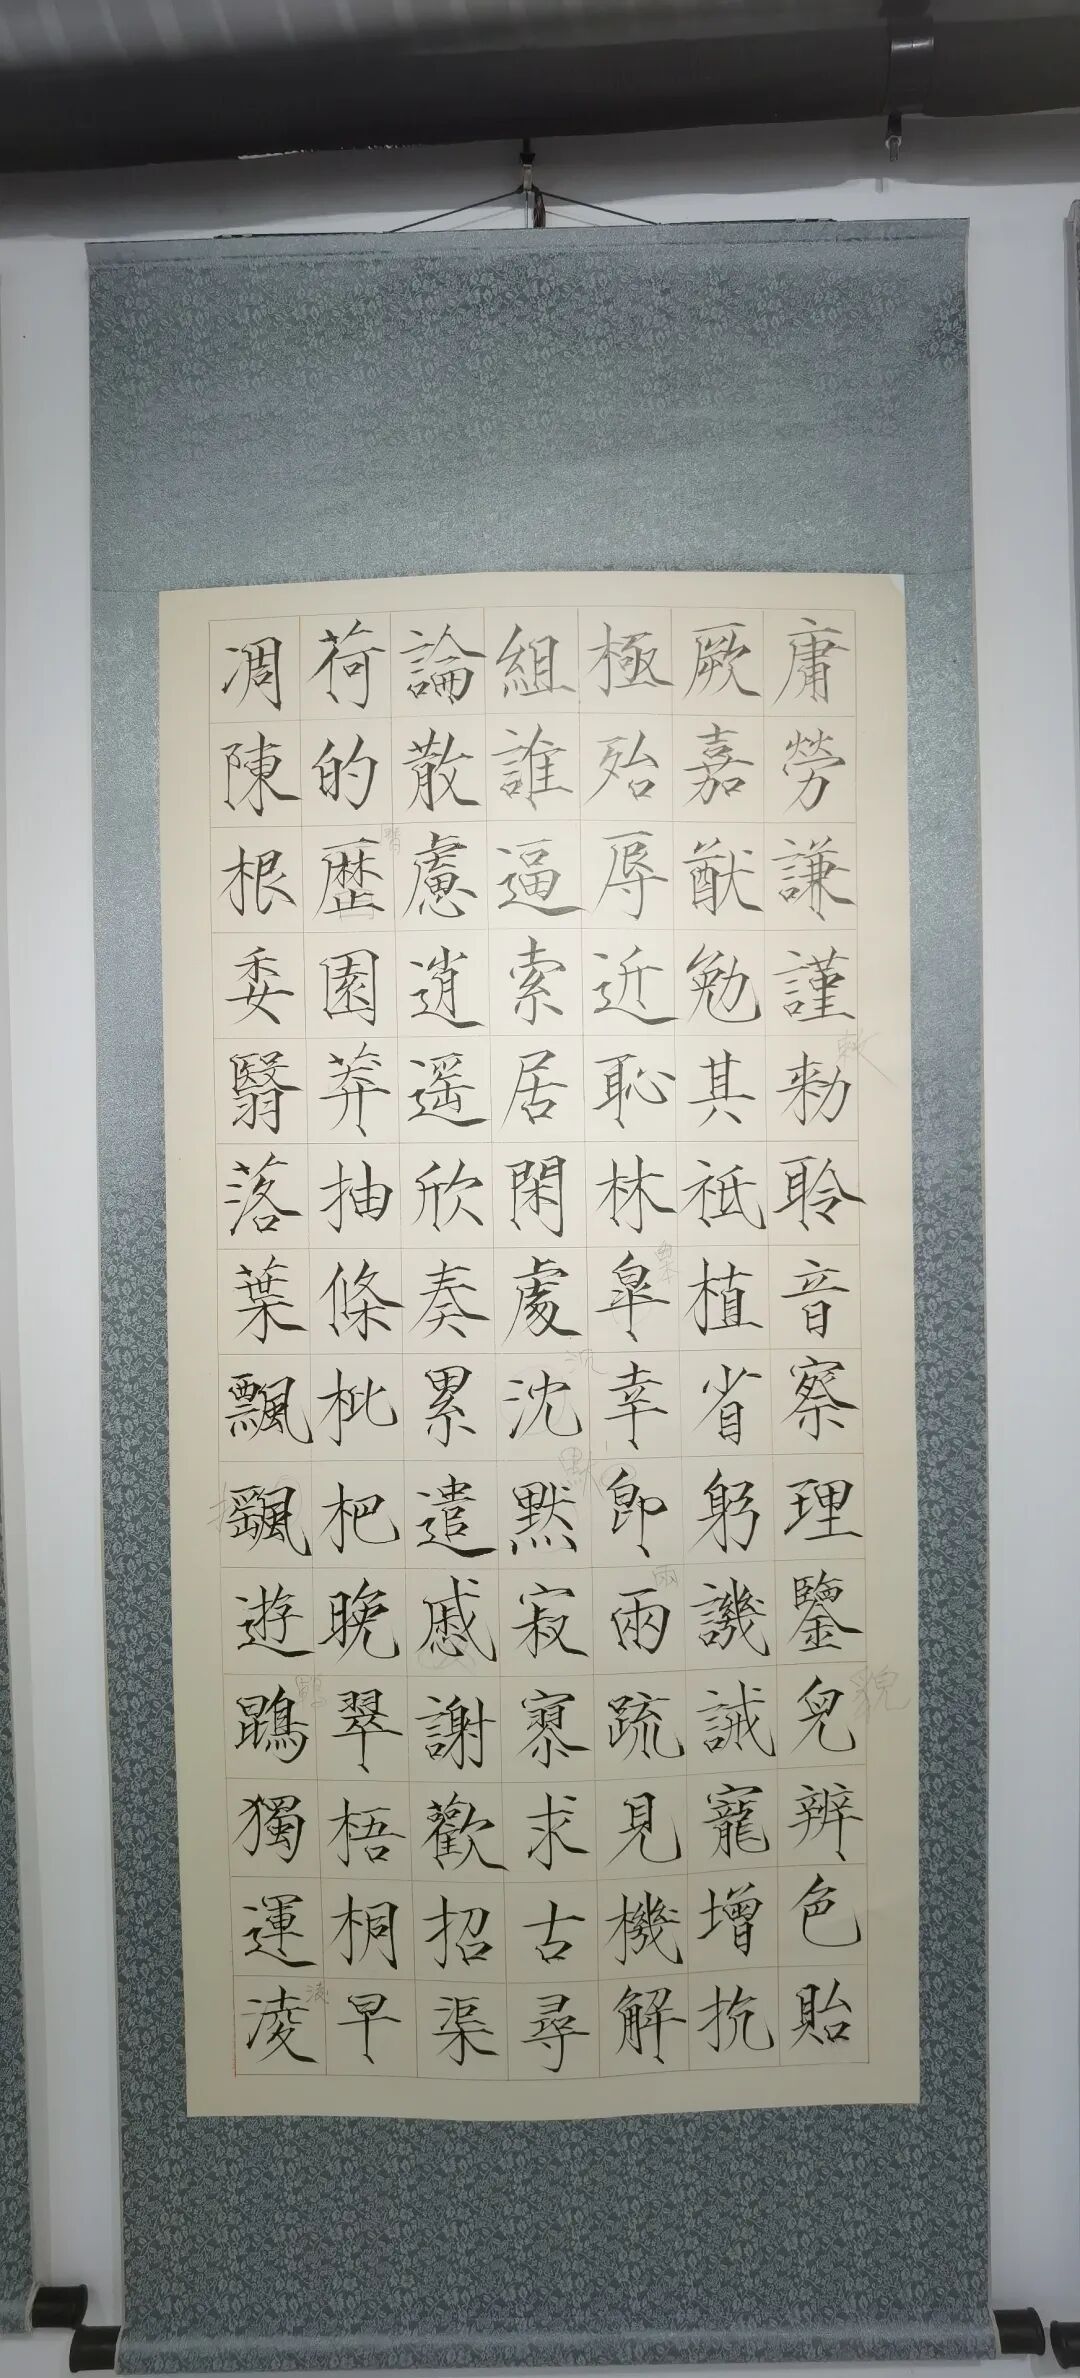 庸勞謙謹勑聆音察理鑒皃辨色貽
厥嘉猷勉其祗植省躬譏誡寵增抗
極殆辱近恥林皐幸即兩疏見機解
組誰逼索居閑處沈默寂寥求古尋
論散慮逍遥欣奏累遣慼謝歡招渠
荷的歷園莽抽條枇杷晚翠梧桐早
凋陳根委翳落葉飄颻遊鵾獨運淩